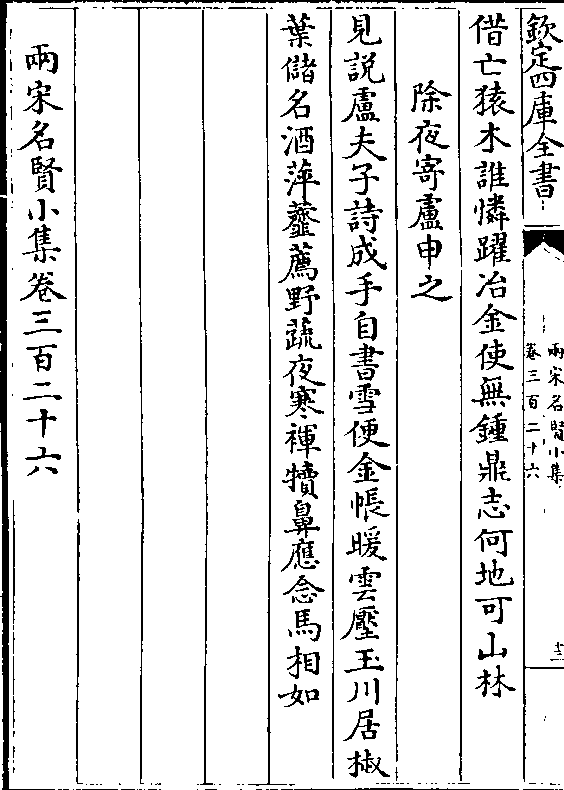 欽定四庫全書
兩宋名賢小集
卷三百二十六
十三
借亡猿木誰憐躍冶金使無鍾鼎志何地可山林
除夜寄盧申之
見說盧夫子詩成手自書雪便金帳暖雲壓玉川居椒
葉儲名酒萍虀薦野蔬夜寒褌犢鼻應念馬相如
兩宋名賢小集卷三百二十六